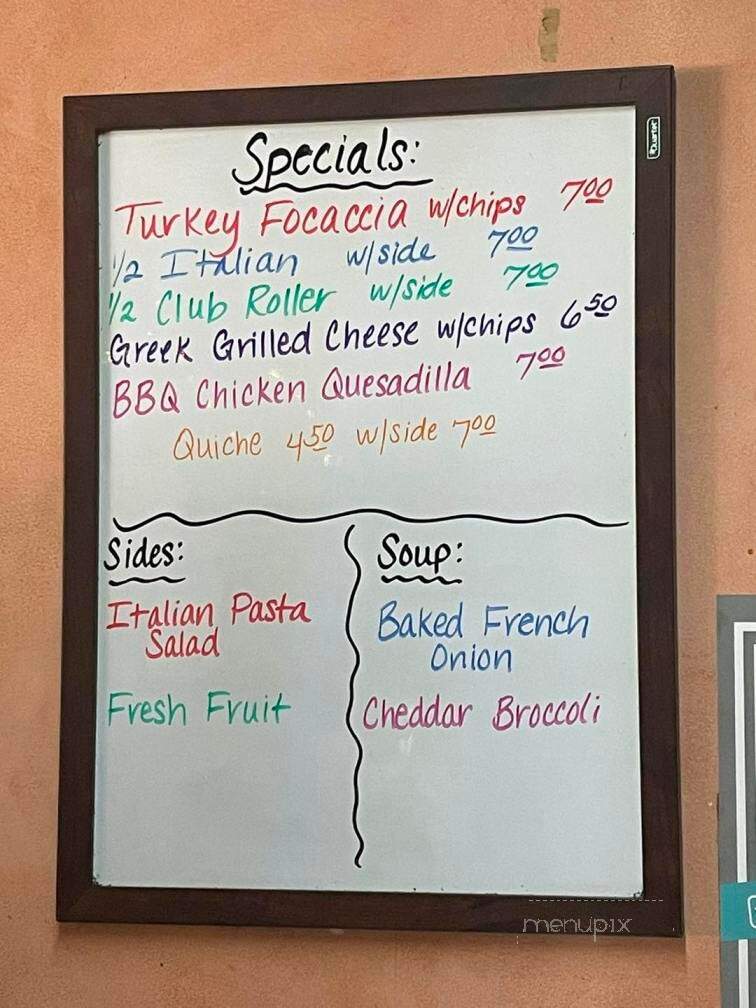 Specials:
Turkey Focaccia w/chips 7.00
1/2 Italian w/side 7.00
1/2 Club Roller w/side 7.00
Greek Grilled Cheese w/chips 6.50
BBQ Chicken Quesadilla 7.00
Quiche 4.50 w/side 7.00
Sides:
Italian Pasta
Salad
Fresh Fruit
Soup:
Baked French
Onion
Cheddar Broccoli
Quartet
menupix